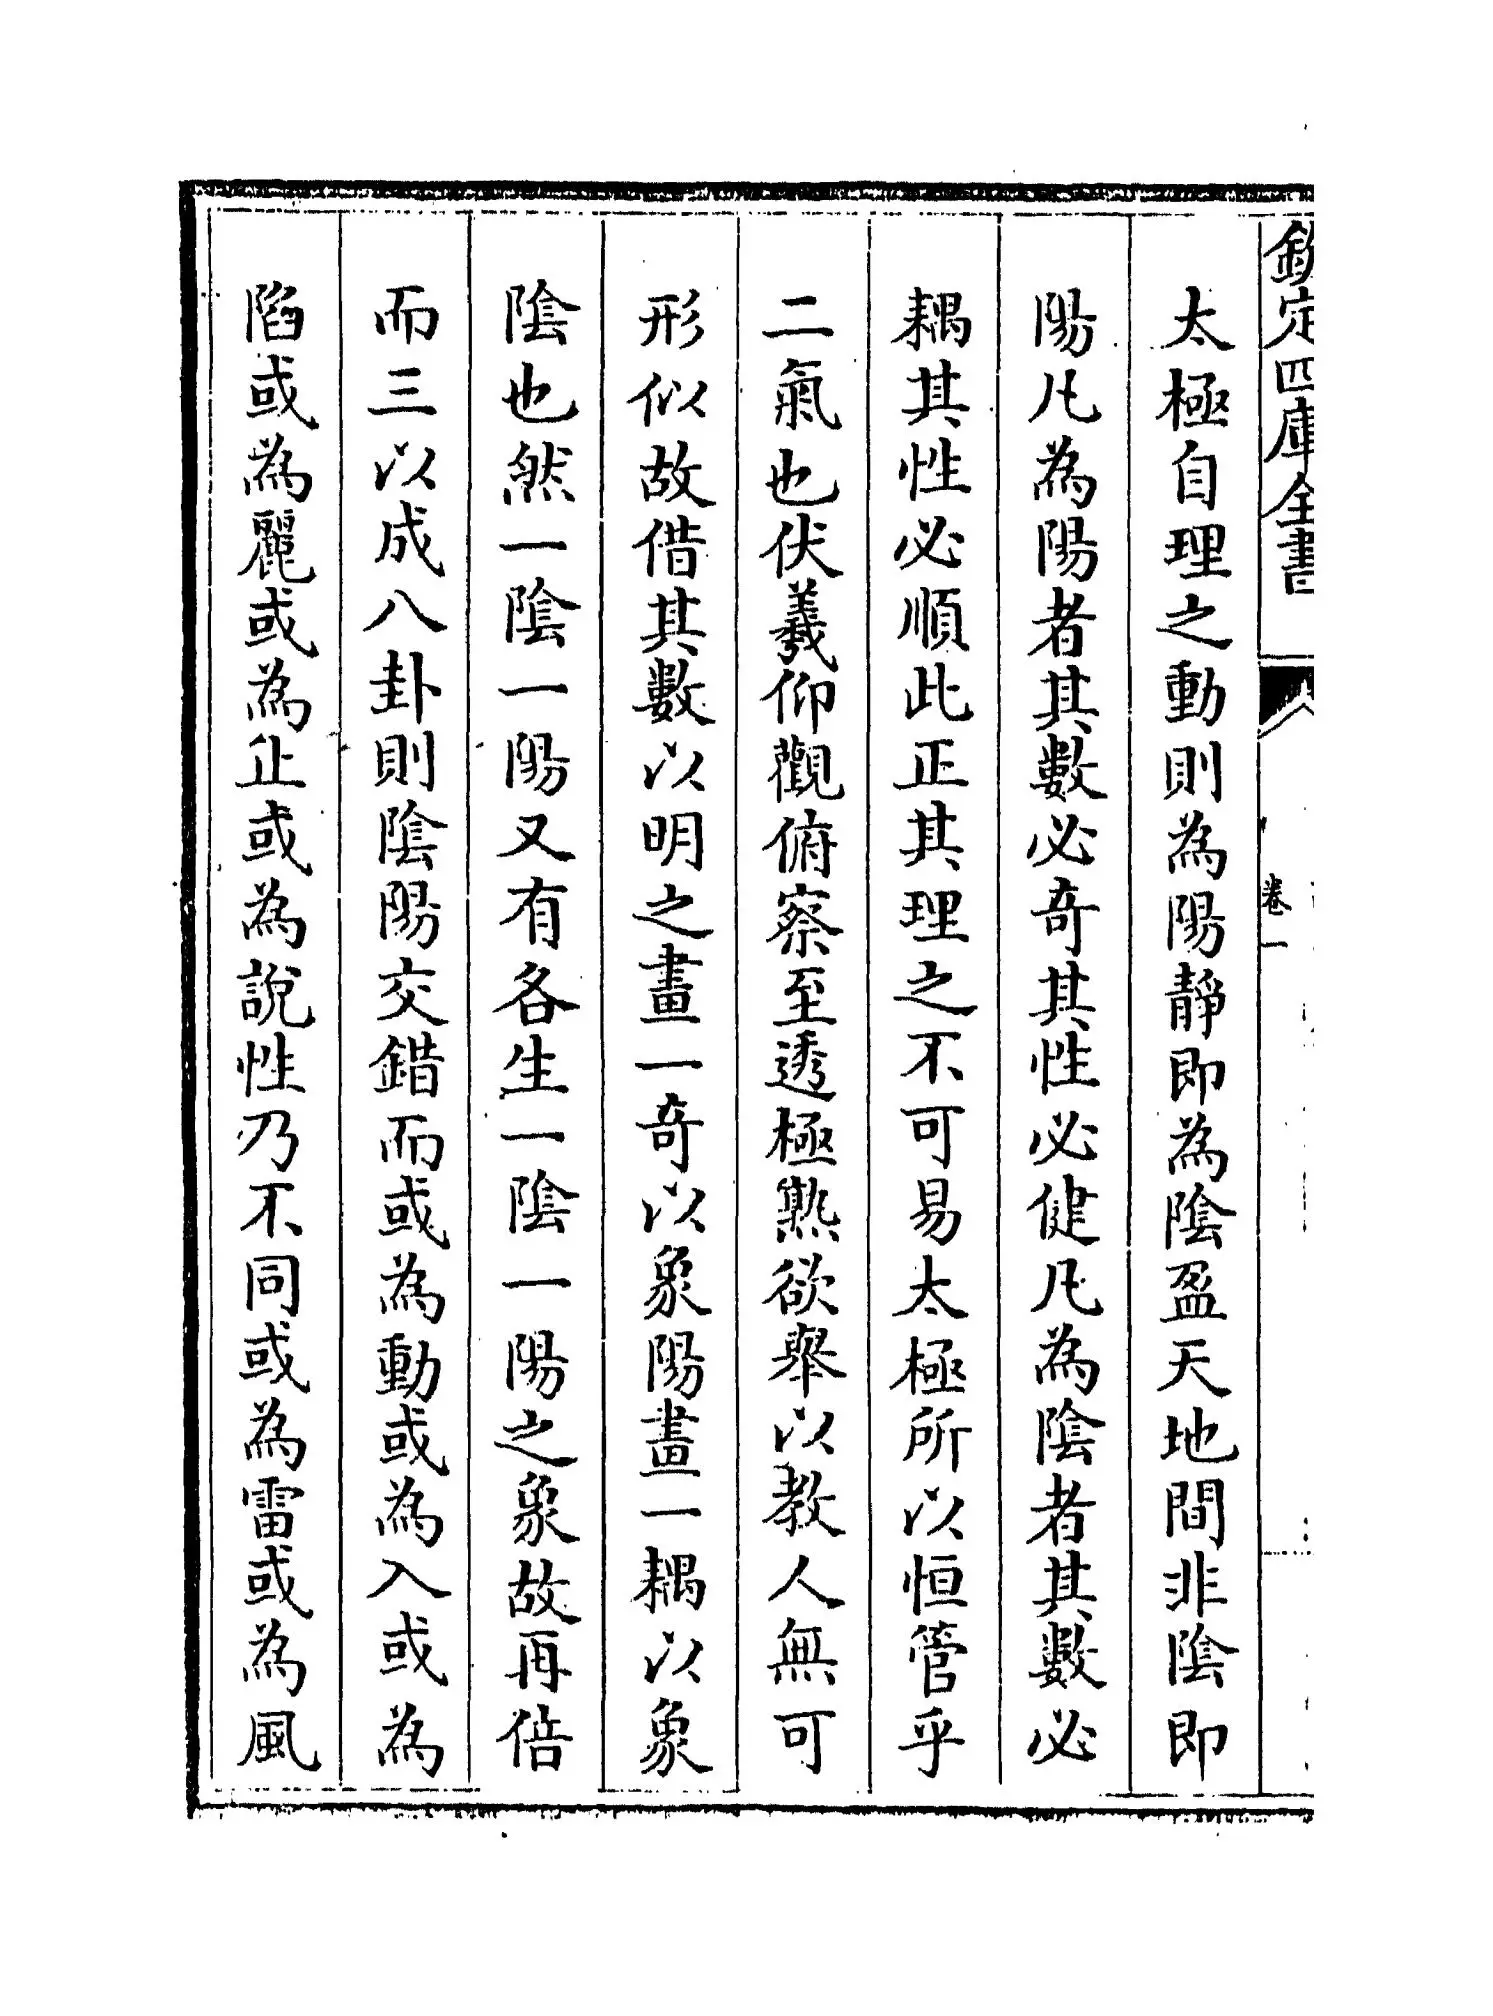 欽定四庫全書
卷一
太極自理之動則為陽靜即為陰盈天地間非陰即
陽凡為陽者其數必奇其性必健凡為陰者其數必
耦其性必順此正其理之不可易太極所以恒管乎
二氣也伏羲仰觀俯察至透極熟欲舉以教人無可
形似故借其數以明之畫一奇以象陽畫一耦以象
陰也然一陰一陽又有各生一陰一陽之象故再倍
而三以成八卦則陰陽交錯而或為動或為入或為
陷或為麗或為止或為說性乃不同或為雷或為風